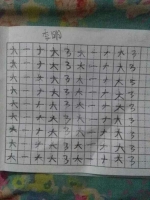 大一ナ大3大一ナ大3
大一ナ大3大一ナ大3
大一ナ大3大一ナ大3
大一ナ大3大一ナ大3
大一ナ大3大一ナ大3
大一ナ大3大一ナ大3
大一ナ大3大一ナ大3
大一ナ大3大一ナ大3
大一ナ大3大一ナ大3